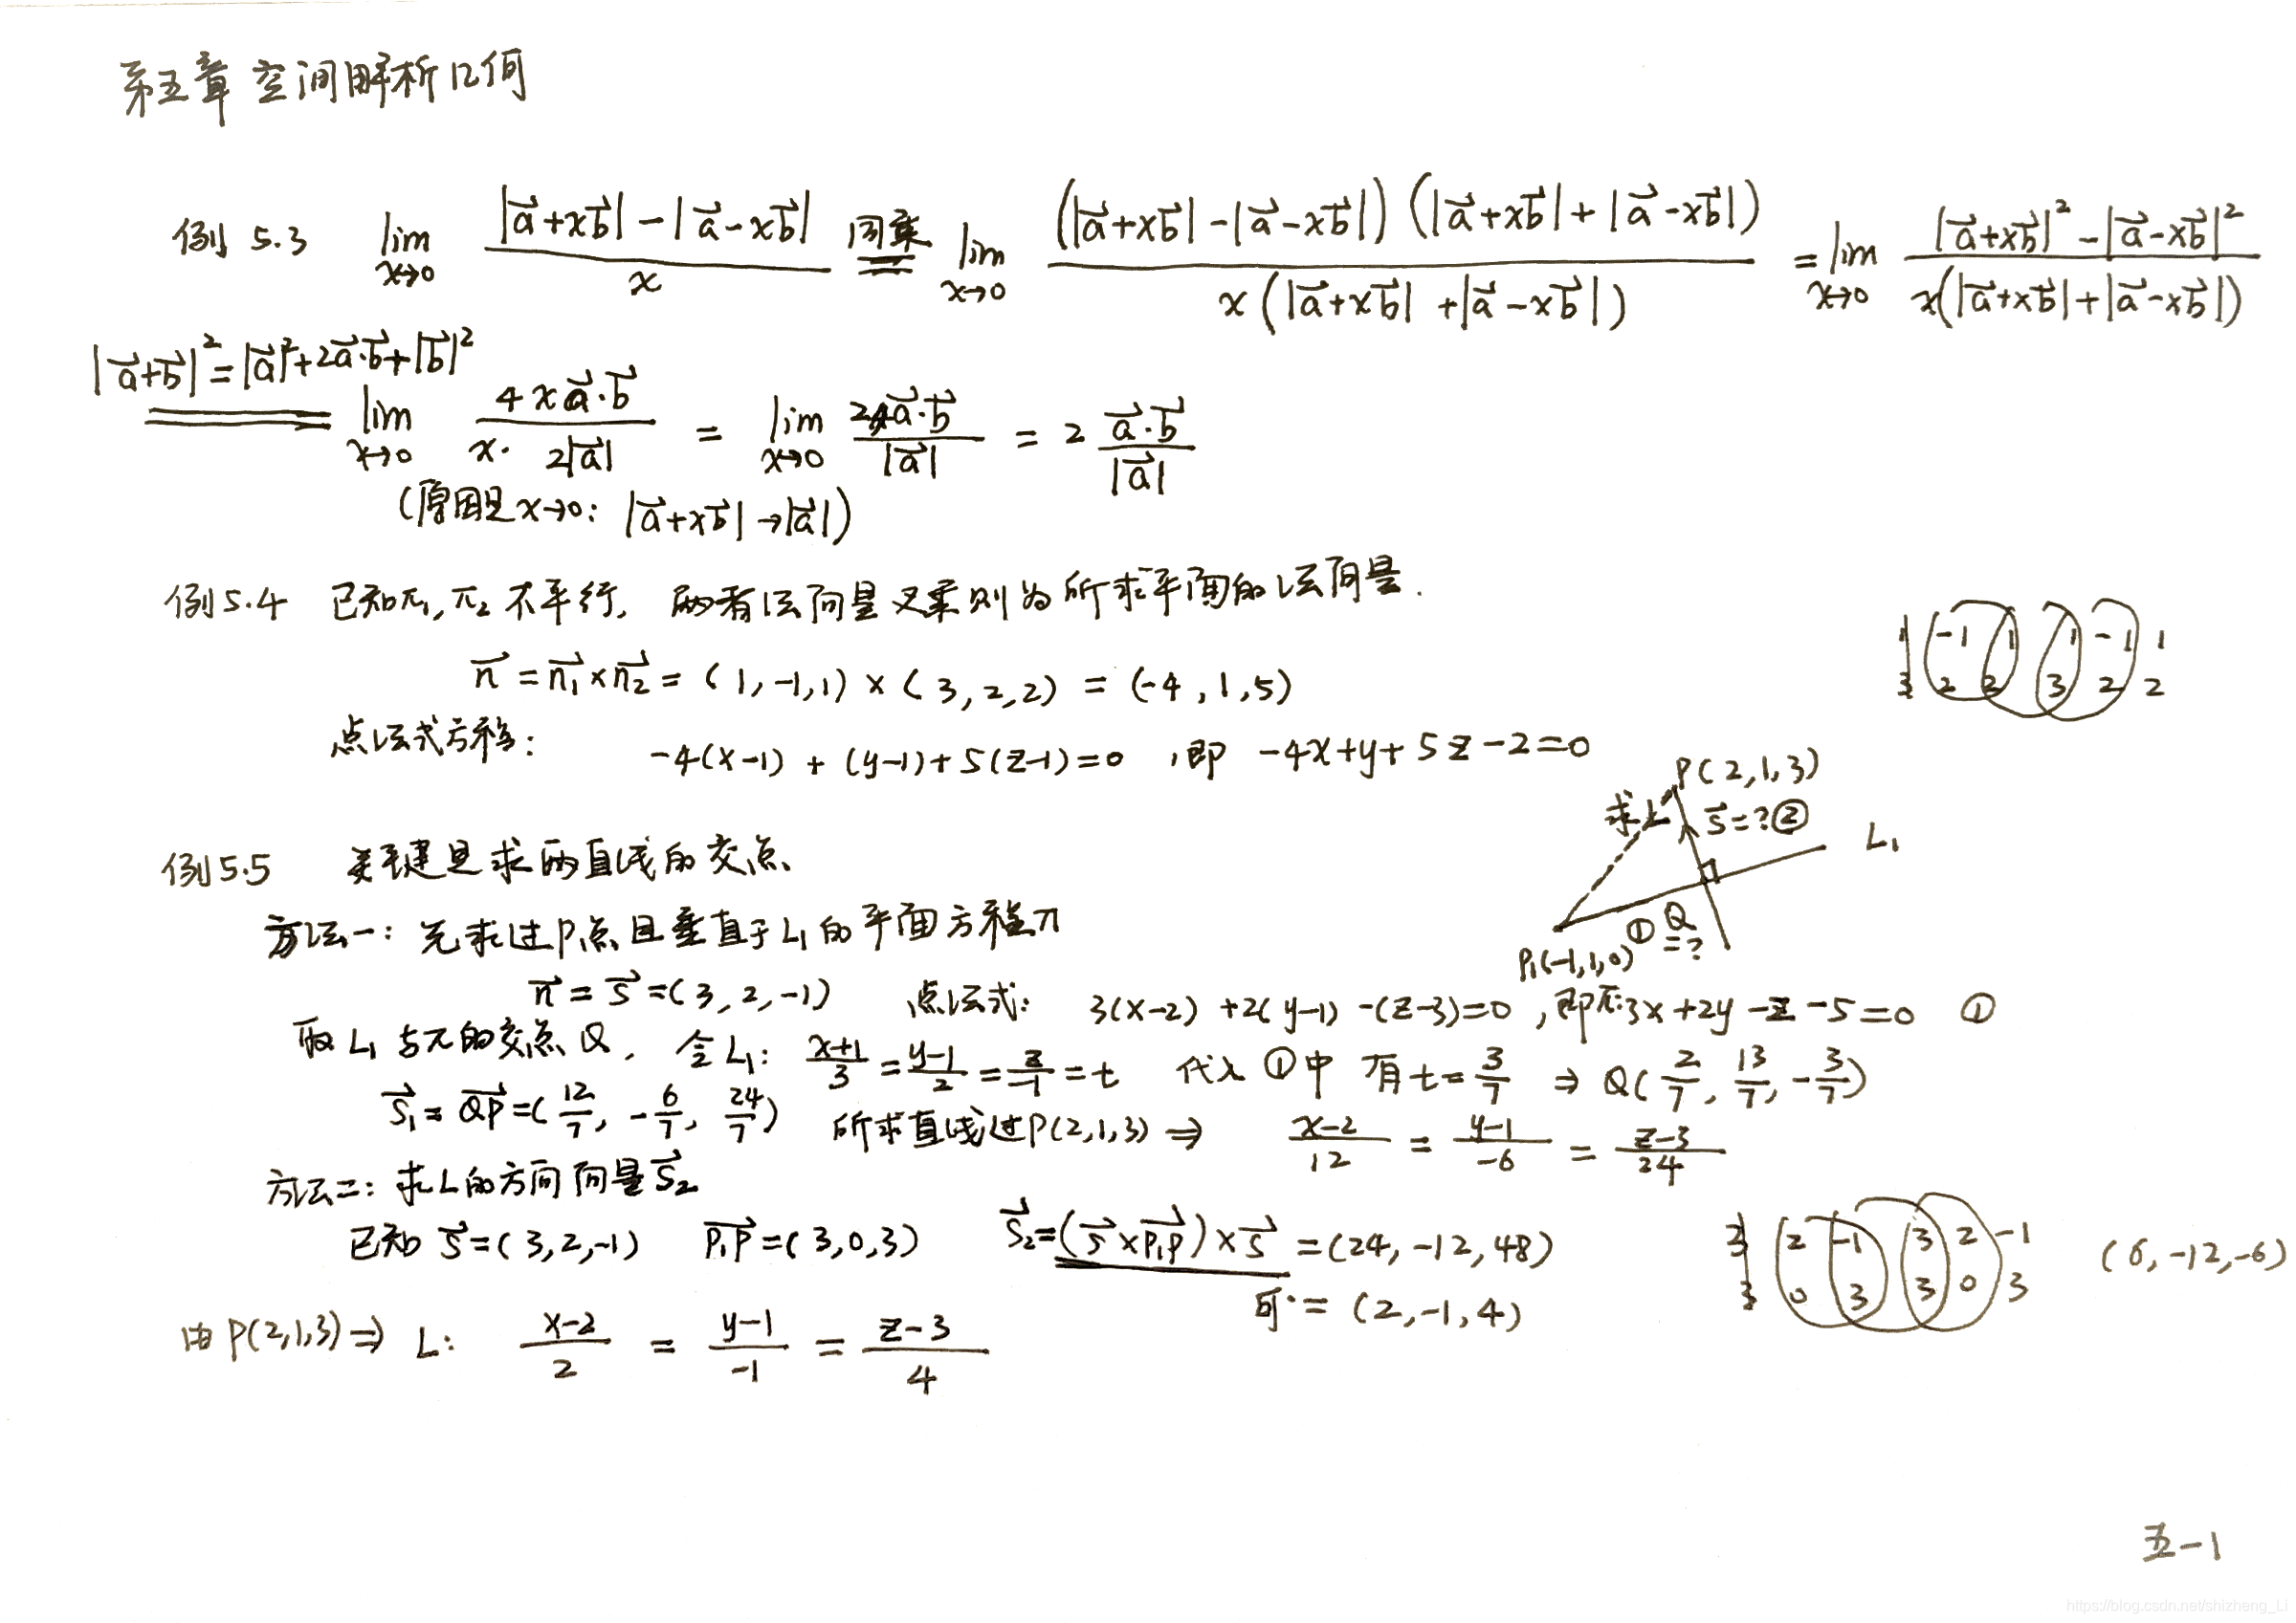 第五章 空间解析几何
例5.3 lim x→0 (|a⃗+xb⃗|-|a⃗-xb⃗|)/x 同乘= lim x→0 (|a⃗+xb⃗|-|a⃗-xb⃗|)(|a⃗+xb⃗|+|a⃗-xb⃗|)/(x(|a⃗+xb⃗|+|a⃗-xb⃗|)) = lim x→0 (|a⃗+xb⃗|²-|a⃗-xb⃗|²)/(x(|a⃗+xb⃗|+|a⃗-xb⃗|))
|a⃗+b⃗|²=|a⃗|²+2a⃗·b⃗+|b⃗|²
= lim x→0 (4xa⃗·b⃗)/(x·2|a⃗|) = lim x→0 (2a⃗·b⃗)/|a⃗| = 2 (a⃗·b⃗)/|a⃗|
(原因是x→0: |a⃗+xb⃗|→|a⃗|)
例5.4 已知π₁,π₂不平行, 两者法向量叉乘则为所求平面的法向量.
n⃗=n₁⃗×n₂⃗=(1,-1,1)×(3,2,2)=(-4,1,5)
1 -1 1 1 -1 1
3 2 2 3 2 2
点法式方程: -4(x-1)+(y-1)+5(z-1)=0 ,即 -4x+y+5z-2=0
P(2,1,3)
求L s⃗=?②
L₁
①Q=?
P₁(-1,1,0)
例5.5 关键是求两直线的交点
方法一: 先求过P点且垂直于L₁的平面方程π
n⃗=s⃗=(3,2,-1) 点法式: 3(x-2)+2(y-1)-(z-3)=0 ,即π:3x+2y-z-5=0 ①
取L₁与π的交点Q, 令L₁: (x+1)/3=(y-1)/2=z/-1=t 代入①中 有t=3/7 ⇒ Q(2/7, 13/7, -3/7)
s₁⃗=QP⃗=(12/7, -6/7, 24/7) 所求直线过P(2,1,3) ⇒ (x-2)/12=(y-1)/-6=(z-3)/24
方法二: 求L的方向向量s₂⃗
已知s⃗=(3,2,-1) P₁P⃗=(3,0,3) s₂⃗=(s⃗×P₁P⃗)×s⃗=(24,-12,48)
可·=(2,-1,4)
3 2 -1 3 2 -1
3 0 3 3 0 3
(6,-12,-6)
由P(2,1,3)⇒ L: (x-2)/2=(y-1)/-1=(z-3)/4
五-1
https://blog.csdn.net/shizheng_Li